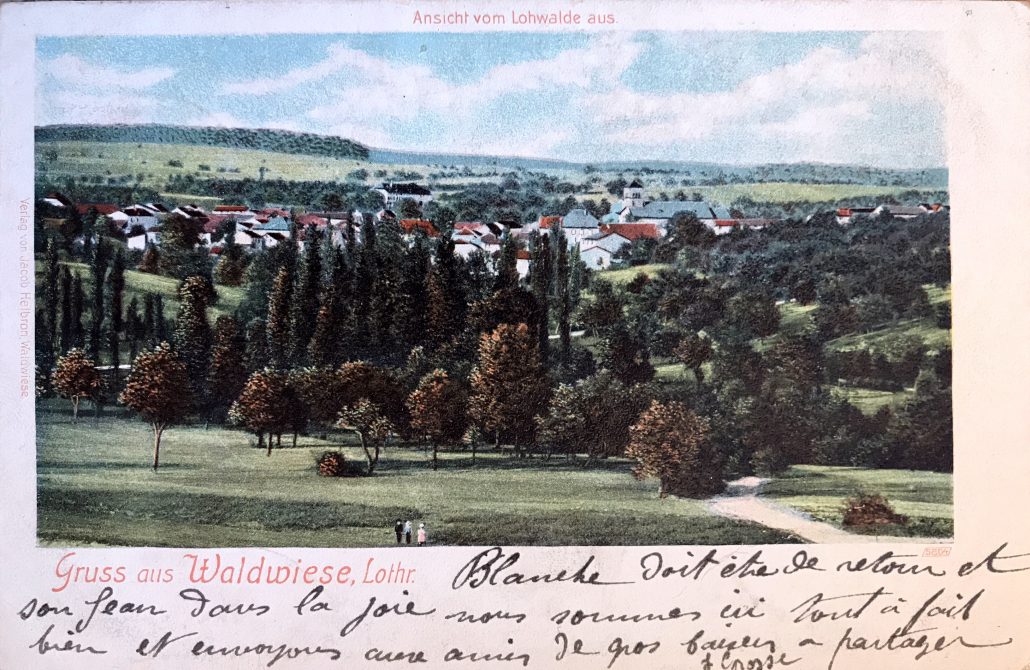 Ansicht vom Lohwalde aus.
Verlag von Jacob Heilbron, Waldwiese.
5804
Gruss aus Waldwiese, Lothr.
Blanche doit être de retour et
son Jean dans la joie nous sommes ici tout à fait
bien et envoyons aux amis de gros baisers a partager